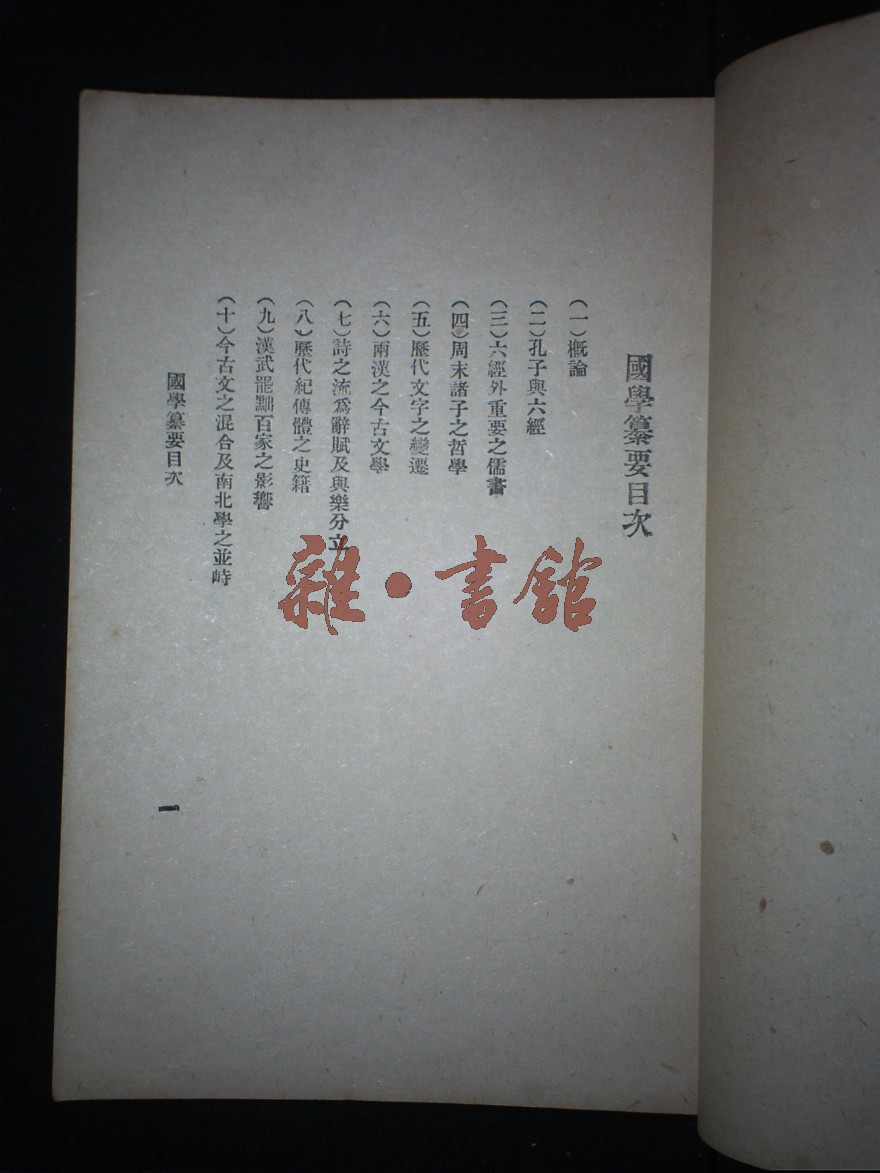 國學纂要目次
（一）概論
（二）孔子與六經
（三）六經外重要之儒書
（四）周末諸子之哲學
（五）歷代文字之變遷
（六）兩漢之今古文學
（七）詩之流爲辭賦及與樂分立
（八）歷代紀傳體之史籍
（九）漢武罷黜百家之影響
（十）今古文之混合及南北學之並峙
國學纂要目次
一
雜•書館